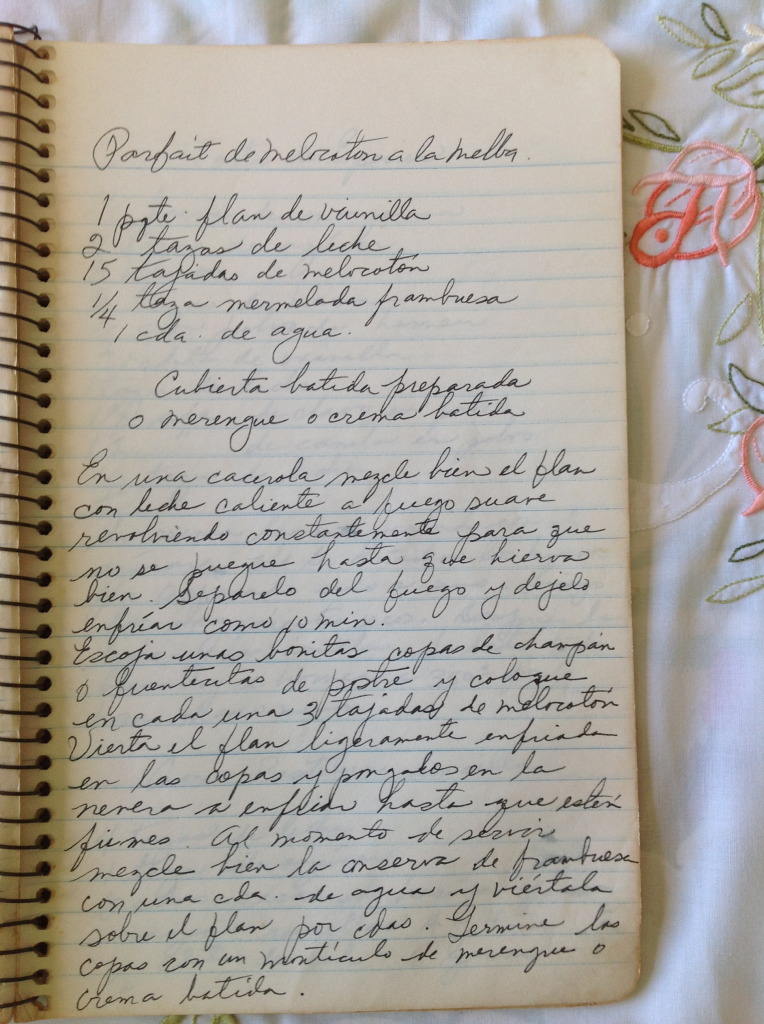 Parfait de melocoton a la melba.
1 pqte. flan de vainilla
2 tazas de leche
15 tajadas de melocotón
1/4 taza mermelada frambuesa
1 cda. de agua.
Cubierta batida preparada
o merengue o crema batida
En una cacerola mezcle bien el flan
con leche caliente a fuego suave
revolviendo constantemente para que
no se puegue hasta que hierva
bien. Separelo del fuego y dejelo
enfríar como 10 min.
Escoja unas bonitas copas de champán
o fuentecitas de postre y coloque
en cada una 3 tajadas de melocotón
Vierta el flan ligeramente enfriada
en las copas y pongalos en la
nevera a enfriar hasta que estén
firmes. Al momento de servir
mezcle bien la conserva de frambuesa
con una cda. de agua y viértala
sobre el flan por cdas. Termine las
copas con un montículo de merengue o
crema batida.